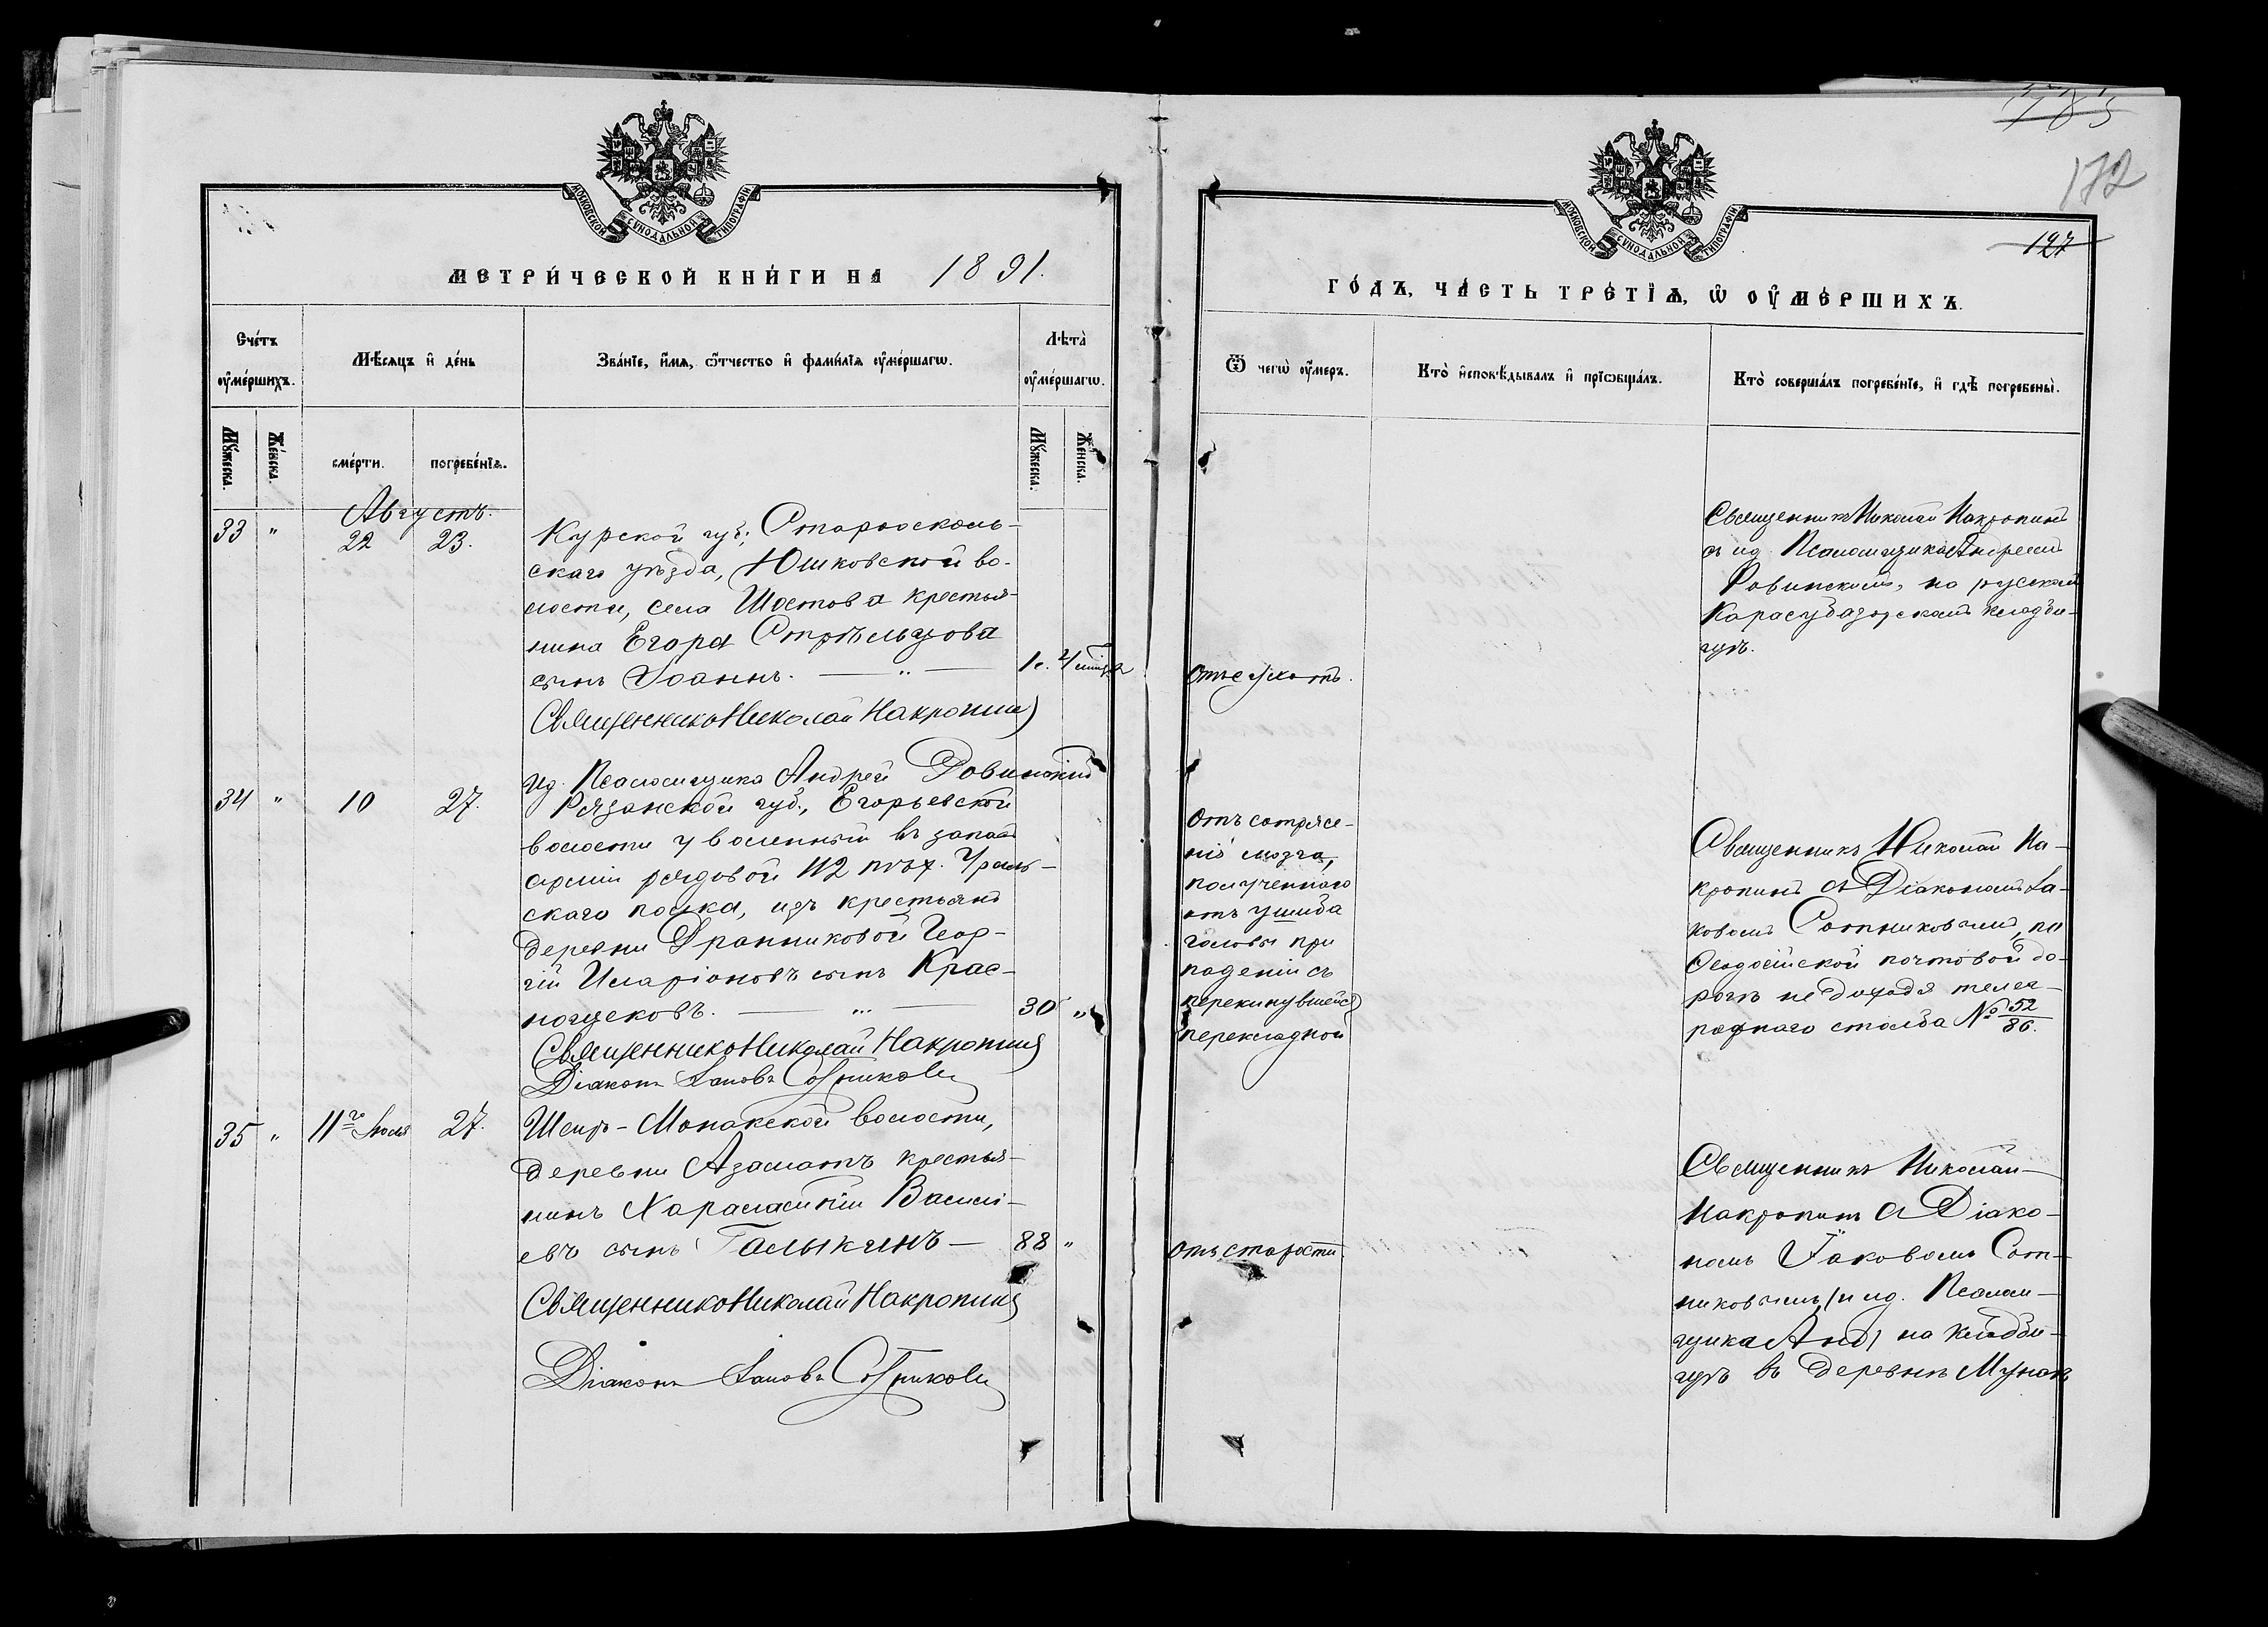 185
172
127
МОСКОВСКОЙ СѴНОДАЛЬНОЙ ТИПОГРАФІИ
МЕТРИ́ЧЕСКОЙ КНИ́ГИ НА 1891.
Сче́тъ ᲂу҆ме́ршихъ.
Мѣ́сяцъ и҆ де́нь
Зва́нїе, и҆́мѧ, ѻ҆́тчество и҆ фами́лїѧ ᲂу҆ме́ршагѡ.
Лѣта̀ ᲂу҆ме́ршагѡ.
Мꙋ́жеска.
Же́нска.
сме́рти.
погребе́нїѧ.
Мꙋ́жеска.
Же́нска.
Августъ.
33 " 22 23.
Курской губ; Староосколь-
скаго уѣзда, Юшковской во-
лости, села Шостова крестья-
нина Егора Стрѣльцова
сынъ Іоаннъ. — " — 1 г. 4 мѣсяца
Священникъ Николай Накропинъ
ид. Псаломщика Андрей Ровинскій
34 " 10 27.
Рязанской губ., Егорьевской
волости уволенный въ запасъ
арміи рядовой 112 пѣх. Ураль-
скаго полка, изъ крестьянъ
деревни Дранниковой Геор-
гій Иларіоновъ сынъ Крас-
нощековъ. — " — 30 "
Священникъ Николай Накропинъ
Діаконъ Іаковъ Сотниковъ
35 " 11го Іюля 27.
Шеир-Монакской волости,
деревни Азаматъ крестья-
нинъ Харалампій Василі-
евъ сынъ Галыкинъ — 88 "
Священникъ Николай Накропинъ
Діаконъ Іаковъ Сотниковъ
МОСКОВСКОЙ СѴНОДАЛЬНОЙ ТИПОГРАФІИ
ГО́ДЪ, ЧА́СТЬ ТРЕ́ТЇѦ, Ѡ҆ ОУ҆МЕ́РШИХЪ.
Ѿ чегѡ̀ ᲂу҆́меръ.
Кто̀ и҆сповѣ́дывалъ и҆ прїѡбща́лъ.
Кто̀ соверша́лъ погребе́нїе, и҆ гдѣ̀ погребены̀.
отъ сухотъ.
Священникъ Николай Накропинъ
съ ид. Псаломщика Андреемъ
Ровинскимъ, на русскомъ
Карасубазарскомъ кладби-
щѣ.
отъ сотрясе-
нія мозга,
полученнаго
отъ ушиба
головы при
паденіи съ
перекинувшейся
перекладной
Священникъ Николай На-
кропинъ съ Діакономъ Іа-
ковомъ Сотниковымъ, по
Ѳеодосійской почтовой до-
рогѣ не доходя телег-
рафнаго столба № 52/86.
отъ старости
Священникъ Николай
Накропинъ съ Діако-
номъ Іаковомъ Сот-
никовымъ, и ид. Псалом-
щика Анд, на кладби-
щѣ въ деревнѣ Мунакъ